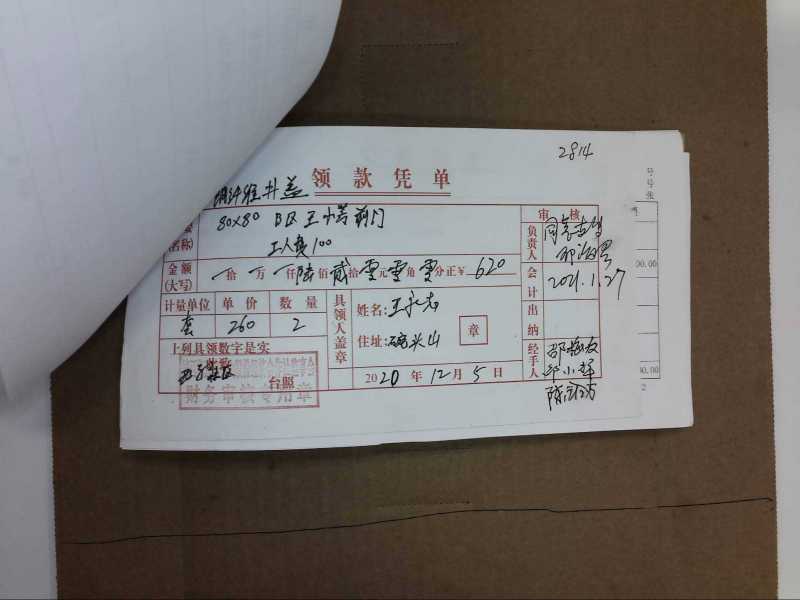 2814
领款凭单
纤维井盖
80×80 B区王小芳前门
工人费100
(名称)
审核
负责人
同意支付
2021.1.27
金额(大写) 拾 万 仟陆佰贰拾零元零角零分正¥620
会计
计量单位 单价 数量
套 260 2
具领人盖章
姓名:王永志
住址:碗头山
章
出纳
上列具领数字是实
此致
台照
财务审核专用章
2020年12月5日
经手人
号
号
张
00.00
00.00
2